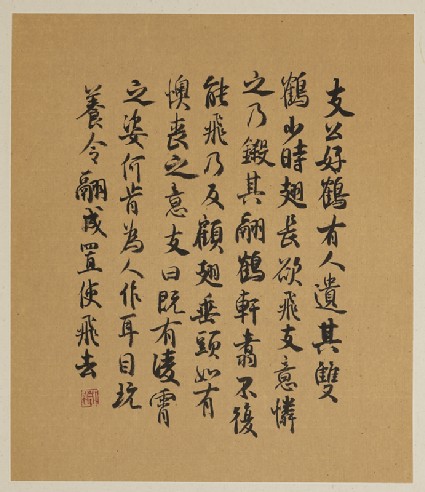 支公好鶴有人遺其雙
鶴少時翅長欲飛支意憐
之乃鎩其翮鶴軒翥不復
能飛乃反顧翅垂頭如有
懊喪之意支曰既有淩霄
之姿何肯為人作耳目玩
養令翮成置使飛去